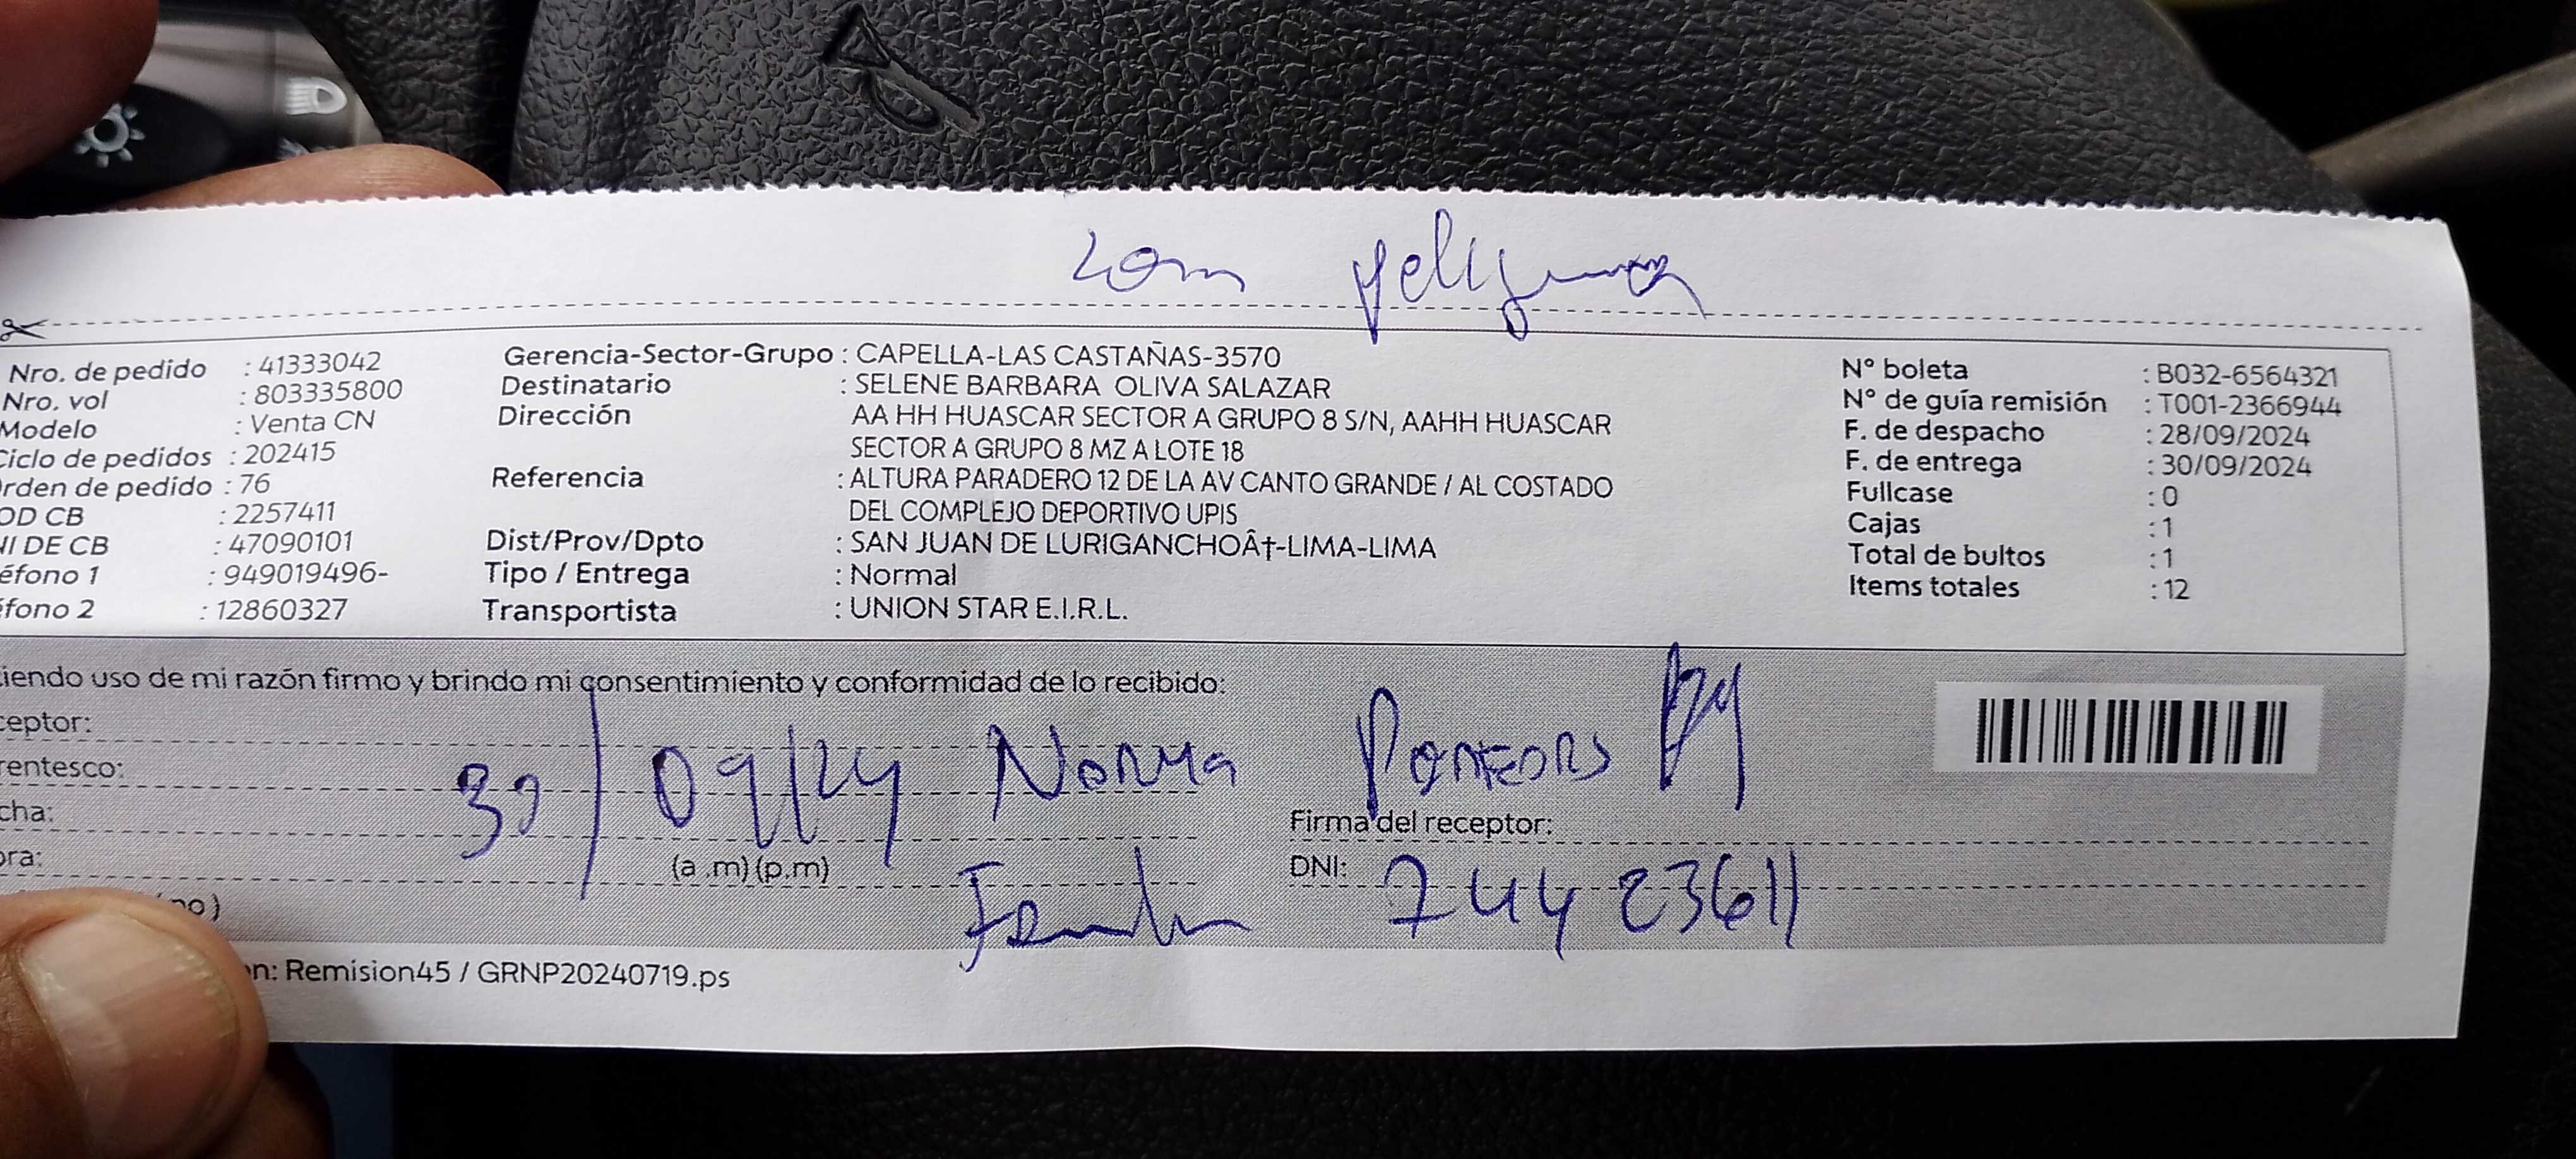 zona peligrosa
Nro. de pedido : 41333042
Nro. vol : 803335800
Modelo : Venta CN
Ciclo de pedidos : 202415
rden de pedido : 76
OD CB : 2257411
NI DE CB : 47090101
éfono 1 : 949019496-
éfono 2 : 12860327
Gerencia-Sector-Grupo : CAPELLA-LAS CASTAÑAS-3570
Destinatario : SELENE BARBARA OLIVA SALAZAR
Dirección AA HH HUASCAR SECTOR A GRUPO 8 S/N, AAHH HUASCAR
SECTOR A GRUPO 8 MZ A LOTE 18
Referencia : ALTURA PARADERO 12 DE LA AV CANTO GRANDE / AL COSTADO
DEL COMPLEJO DEPORTIVO UPIS
Dist/Prov/Dpto : SAN JUAN DE LURIGANCHOÂ†-LIMA-LIMA
Tipo / Entrega : Normal
Transportista : UNION STAR E.I.R.L.
N° boleta : B032-6564321
N° de guía remisión : T001-2366944
F. de despacho : 28/09/2024
F. de entrega : 30/09/2024
Fullcase : 0
Cajas : 1
Total de bultos : 1
Items totales : 12
iendo uso de mi razón firmo y brindo mi consentimiento y conformidad de lo recibido:
ceptor:
rentesco:
cha: 30/09/24 Norma
Firma del receptor:
ora: (a .m) (p.m)
DNI: 74423611
no)
n: Remision45 / GRNP20240719.ps